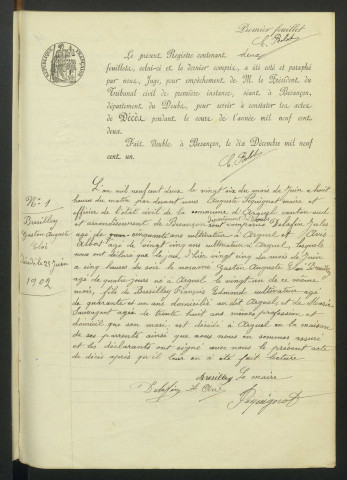 Premier feuillet
Le présent Registre contenant deux
feuillets, celui-ci et le dernier compris, a été coté et paraphé
par nous, Juge, pour empêchement de M. le Président du
Tribunal civil de première instance, séant à Besançon,
département du Doubs, pour servir à constater les actes
de Décès pendant le cours de l'année mil neuf cent
deux.
Fait double à Besançon, le dix Décembre mil neuf
cent un.
N° 1
Gaston Auguste
Eloi
Décédé le 25 Juin
1902
L'an mil neuf cent deux le vingt six du mois de Juin à huit
heures du matin par devant nous Auguste maire et
officier de l'état civil de la commune d'Arguel canton sud
et arrondissement de Besançon sont comparus Delafin Jules
âgé de cinquante ans cultivateur à Arguel et
âgé de vingt cinq ans cultivateur à Arguel, lesquels
nous ont déclaré que le jour d'hier vingt cinq du mois de Juin
à cinq heures du soir le nommé Gaston Auguste Eloi
âgé de quatre jours né à Arguel le vingt un de ce même
mois, fils de François cultivateur âgé
de quarante et un ans domicilié au dit Arguel et de Marie
âgée de trente huit ans même profession et
domicile que son mari est décédé à Arguel en la maison
de ses parents ainsi que nous nous en sommes assuré
et les déclarants ont signé avec nous le présent acte
de décès après qu'il leur en a été fait lecture
Le maire